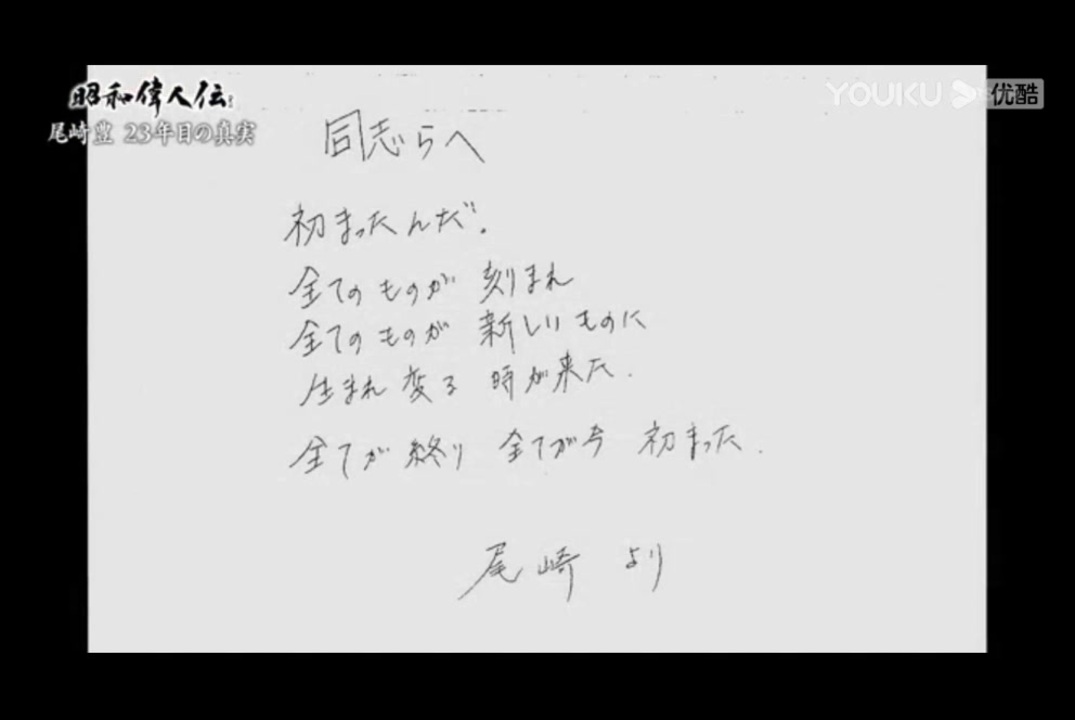 昭和偉人伝
尾崎豊 23年目の真実
YOUKU 优酷
同志らへ
初まったんだ.
全てのものが 刻まれ
全てのものが 新しいものに
生まれ変る 時が来た.
全てが終り 全てが今 初まった.
尾崎 より